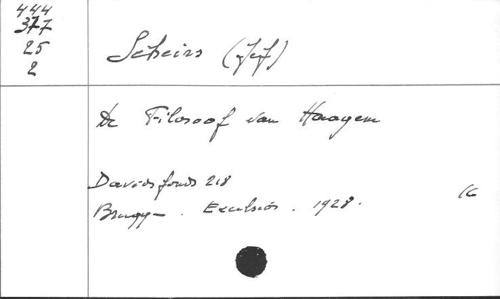 444
377
25
2
Scheirs (Jef)
De Filosoof van Haagem
Davidsfonds 218
Brugge. Excelsior. 1928.